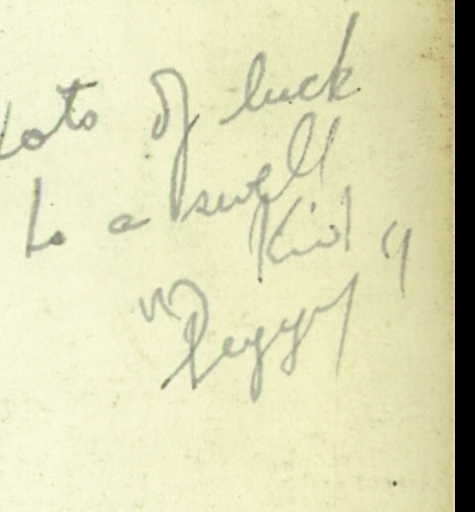 Lots of luck
to a swell
Kid
"Peggy"